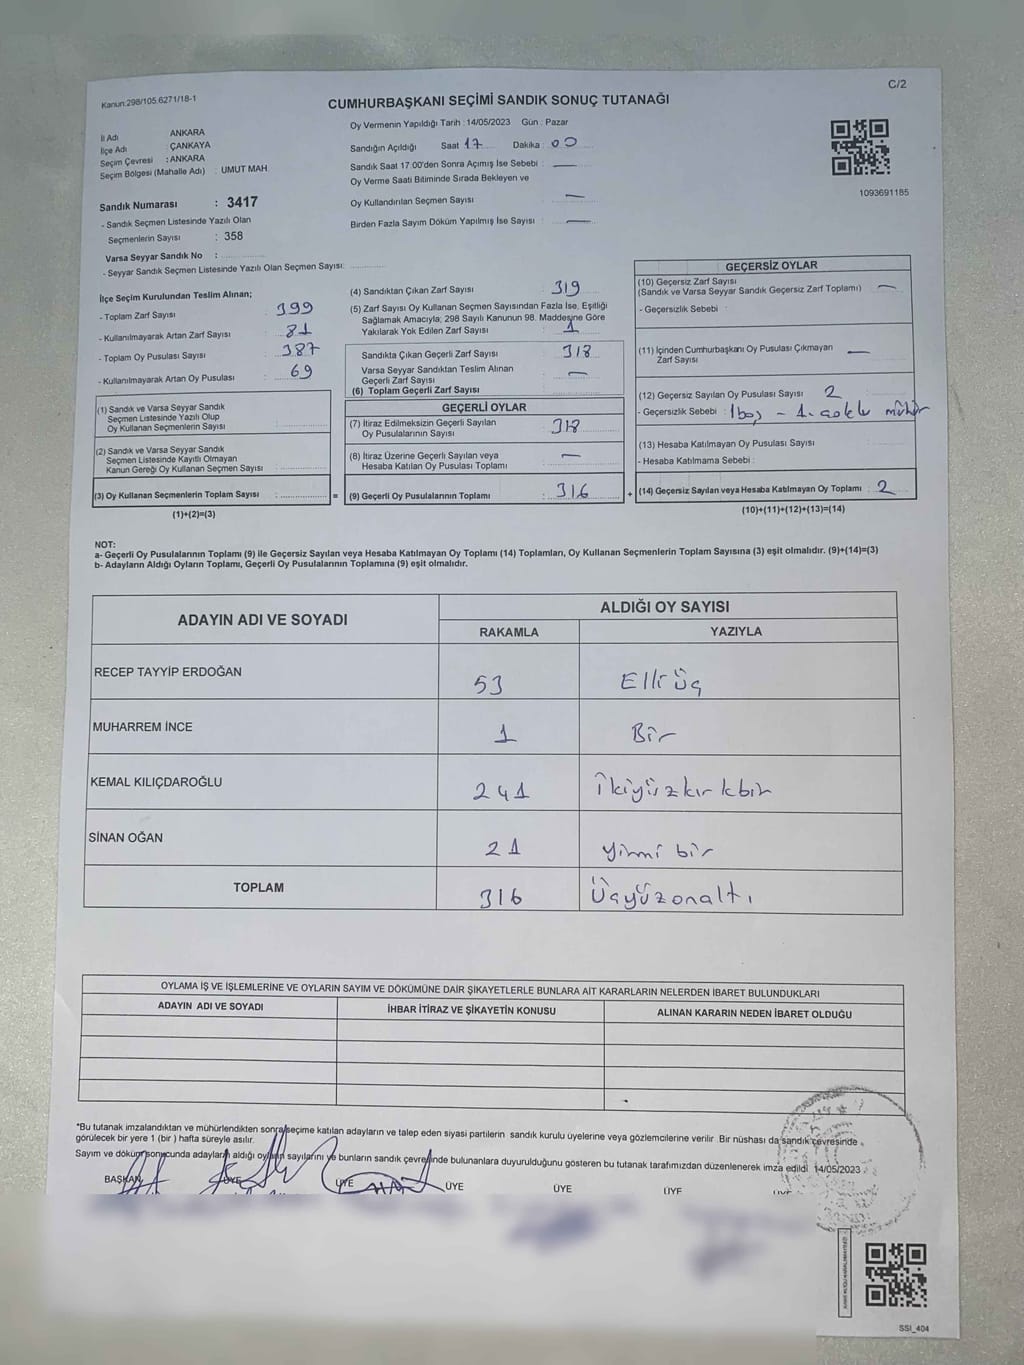 Kanun:298/105.6271/18-1
C/2
CUMHURBAŞKANI SEÇİMİ SANDIK SONUÇ TUTANAĞI
İl Adı ANKARA
İlçe Adı ÇANKAYA
Seçim Çevresi : ANKARA
Seçim Bölgesi (Mahalle Adı) : UMUT MAH.
Sandık Numarası : 3417
- Sandık Seçmen Listesinde Yazılı Olan
Seçmenlerin Sayısı : 358
Varsa Seyyar Sandık No :
- Seyyar Sandık Seçmen Listesinde Yazılı Olan Seçmen Sayısı:
Oy Vermenin Yapıldığı Tarih : 14/05/2023 Gün : Pazar
Sandığın Açıldığı Saat 17 Dakika : 00
Sandık Saat 17:00'den Sonra Açımış İse Sebebi : —
Oy Verme Saati Bitiminde Sırada Bekleyen ve
Oy Kullandırılan Seçmen Sayısı : —
Birden Fazla Sayım Döküm Yapılmış İse Sayısı : —
1093691185
İlçe Seçim Kurulundan Teslim Alınan;
- Toplam Zarf Sayısı : 399
- Kullanılmayarak Artan Zarf Sayısı : 81
- Toplam Oy Pusulası Sayısı : 387
- Kullanılmayarak Artan Oy Pusulası : 69
(1) Sandık ve Varsa Seyyar Sandık
Seçmen Listesinde Yazılı Olup
Oy Kullanan Seçmenlerin Sayısı :
(2) Sandık ve Varsa Seyyar Sandık
Seçmen Listesinde Kayıtlı Olmayan
Kanun Gereği Oy Kullanan Seçmen Sayısı :
(3) Oy Kullanan Seçmenlerin Toplam Sayısı :
(1)+(2)=(3)
(4) Sandıktan Çıkan Zarf Sayısı : 319
(5) Zarf Sayısı Oy Kullanan Seçmen Sayısından Fazla İse, Eşitliği
Sağlamak Amacıyla; 298 Sayılı Kanunun 98. Maddesine Göre
Yakılarak Yok Edilen Zarf Sayısı : 1
Sandıkta Çıkan Geçerli Zarf Sayısı : 318
Varsa Seyyar Sandıktan Teslim Alınan
Geçerli Zarf Sayısı : —
(6) Toplam Geçerli Zarf Sayısı
GEÇERLİ OYLAR
(7) İtiraz Edilmeksizin Geçerli Sayılan
Oy Pusulalarının Sayısı : 318
(8) İtiraz Üzerine Geçerli Sayılan veya
Hesaba Katılan Oy Pusulası Toplamı : —
= (9) Geçerli Oy Pusulalarının Toplamı : 316
GEÇERSİZ OYLAR
(10) Geçersiz Zarf Sayısı
(Sandık ve Varsa Seyyar Sandık Geçersiz Zarf Toplamı) : —
- Geçersizlik Sebebi :
(11) İçinden Cumhurbaşkanı Oy Pusulası Çıkmayan
Zarf Sayısı : —
(12) Geçersiz Sayılan Oy Pusulası Sayısı : 2
- Geçersizlik Sebebi : 1 boş - 1 çoklu mühür
(13) Hesaba Katılmayan Oy Pusulası Sayısı :
- Hesaba Katılmama Sebebi :
+ (14) Geçersiz Sayılan veya Hesaba Katılmayan Oy Toplamı : 2
(10)+(11)+(12)+(13)=(14)
NOT:
a- Geçerli Oy Pusulalarının Toplamı (9) ile Geçersiz Sayılan veya Hesaba Katılmayan Oy Toplamı (14) Toplamları, Oy Kullanan Seçmenlerin Toplam Sayısına (3) eşit olmalıdır. (9)+(14)=(3)
b- Adayların Aldığı Oyların Toplamı, Geçerli Oy Pusulalarının Toplamına (9) eşit olmalıdır.
ADAYIN ADI VE SOYADI
ALDIĞI OY SAYISI
RAKAMLA YAZIYLA
RECEP TAYYİP ERDOĞAN 53 Elli üç
MUHARREM İNCE 1 Bir
KEMAL KILIÇDAROĞLU 241 İkiyüzkırkbir
SİNAN OĞAN 21 Yirmi bir
TOPLAM 316 Üçyüzonaltı
OYLAMA İŞ VE İŞLEMLERİNE VE OYLARIN SAYIM VE DÖKÜMÜNE DAİR ŞİKAYETLERLE BUNLARA AİT KARARLARIN NELERDEN İBARET BULUNDUKLARI
ADAYIN ADI VE SOYADI İHBAR İTİRAZ VE ŞİKAYETİN KONUSU ALINAN KARARIN NEDEN İBARET OLDUĞU
*Bu tutanak imzalandıktan ve mühürlendikten sonra seçime katılan adayların ve talep eden siyasi partilerin sandık kurulu üyelerine veya gözlemcilerine verilir. Bir nüshası da sandık çevresinde
görülecek bir yere 1 (bir ) hafta süreyle asılır.
Sayım ve döküm sonucunda adayların aldığı oyların sayılarını ve bunların sandık çevresinde bulunanlara duyurulduğunu gösteren bu tutanak tarafımızdan düzenlenerek imza edildi. 14/05/2023
BAŞKAN ÜYE ÜYE ÜYE ÜYE ÜYE ÜYE
SSI_404